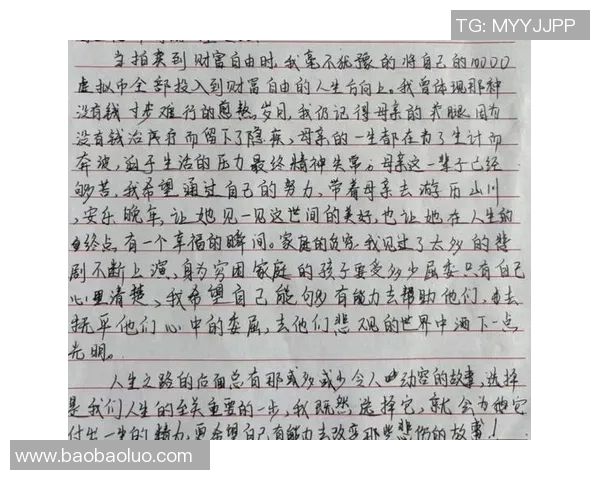 TG: MYYJJPP
当拍卖到财富自由时,我毫不犹豫的将自己的10000
虚拟币全部投入到财富自由的人生方向上。我曾体现那种
没有钱寸步难行的岁月,我仍记得母亲的腿因为
没有钱治疗而留下了隐疾、母亲的一生都在为了生计而
奔波,迫于生活的压力最终精神失常。母亲这一辈子已经
够苦,我希望通过自己的努力,带着母亲去游历山川
,安乐晚年,让她见一见这世间的美好,也让她在人生的
终点有一个幸福的瞬间。家庭的贫穷,我见过了太多的悲
剧不断上演,身为穷困家庭的孩子要受多少屈委只有自己
心里清楚、我希望自己能够有能力去帮助他们,去
抚平他们心中的委屈,去他们悲观的世界中洒下一点
光明。
人生之路的后面总有那或多或少令人动容的故事,选择
是我们人生的至关重要的一步,我既然选择它,就会为他穷
付出一生的精力,更希望自己有能力去改变那些悲伤的故事!
www.baobaoluo.com